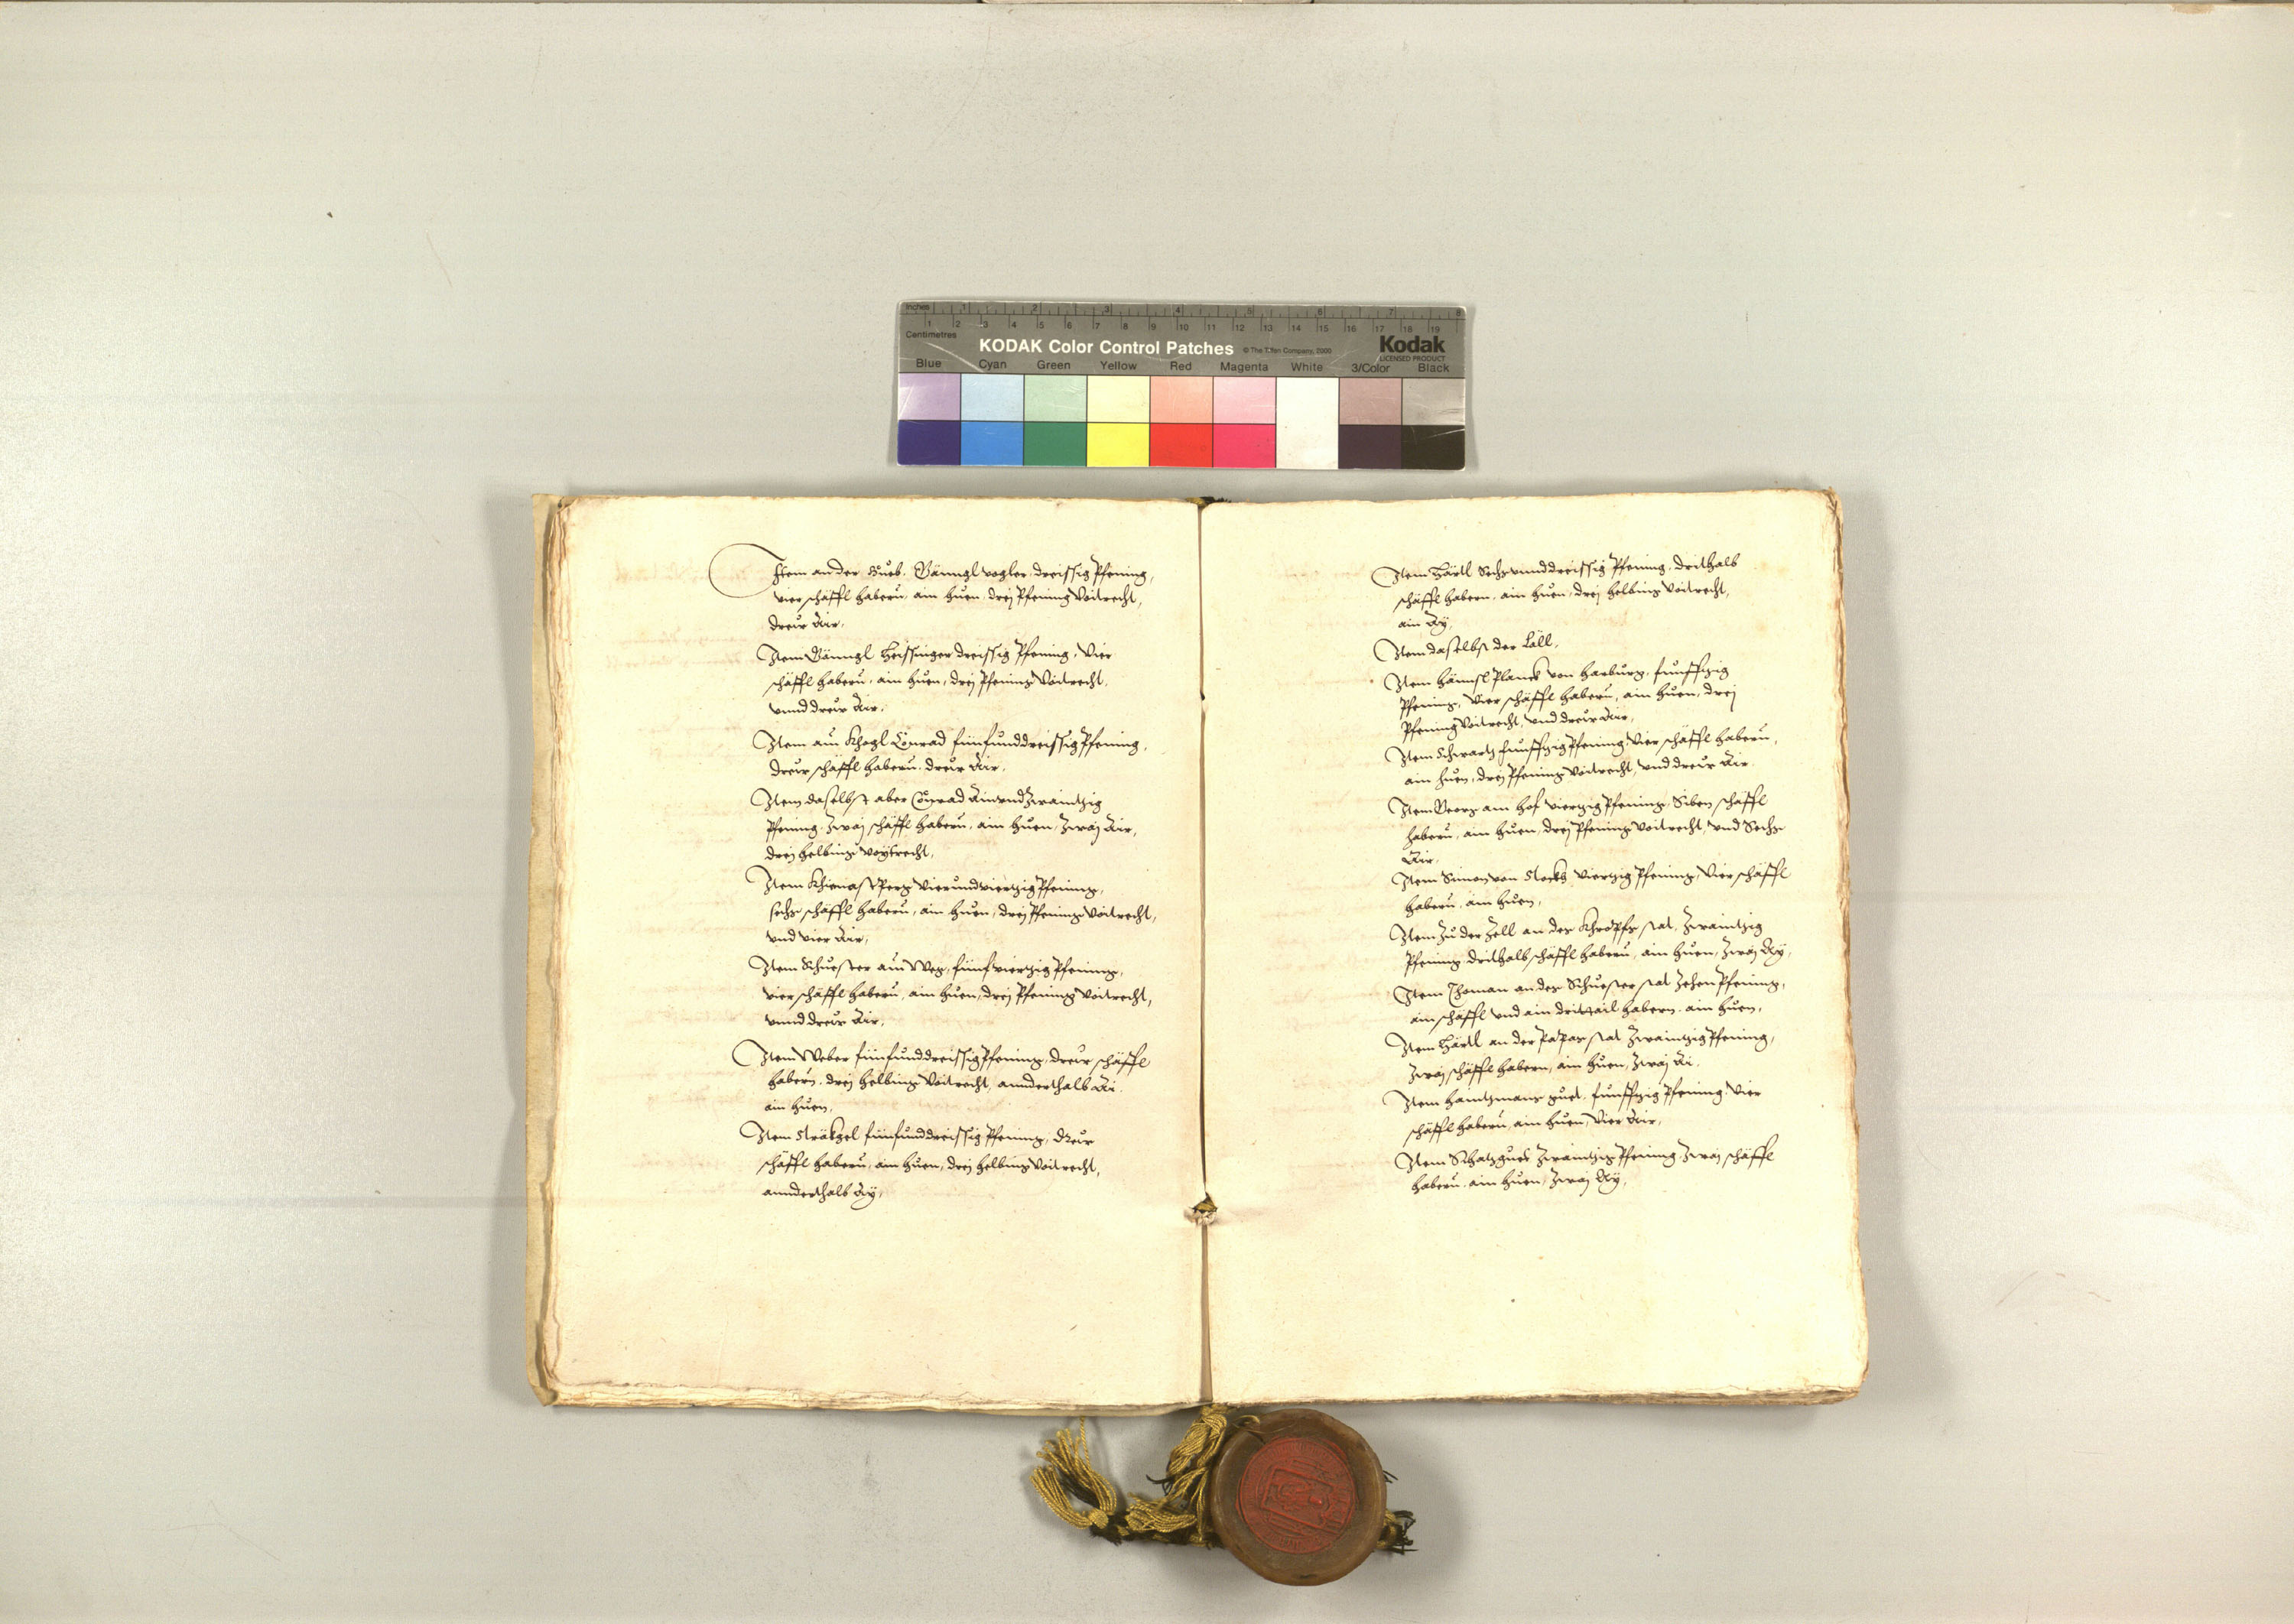 Inches 1 2 3 4 5 6 7 8
1 2 3 4 5 6 7 8 9 10 11 12 13 14 15 16 17 18 19
Centimetres
KODAK Color Control Patches © The Tiffen Company, 2000 Kodak
LICENSED PRODUCT
Blue Cyan Green Yellow Red Magenta White 3/Color Black
Item an der Hueb, vogler, dreissig Pfening,
vier schäffl habern, ain huen, drej Pfening Voitrecht,
dreur Air,
Item dreissig Pfening, Vier
schäffl habern, ain huen, drej Pfening Voitrecht,
vnnd dreur Air,
Item am Khogl Conrad fünfunddreissig Pfening,
dreur schäffl habern, dreur Air,
Item daselbst aber Conrad Ainundzwaintzig
Pfening, Zwaj schäffl habern, ain huen, Zwaj Air,
drej helbing Voytrecht,
Item Vierundviertzig Pfening,
sechs schäffl habern, ain huen, drej Pfening Voitrecht,
vnd vier Air,
Item Schuester am Weg, fünfviertzig Pfening,
vier schäffl habern, ain huen, drej Pfening Voitrecht,
vnnd dreur Air,
Item Weber fünfunddreissig Pfening, dreur schäffl
habern, drej helbing Voitrecht, annderthalb Ai
ain huen,
Item fünfunddreissig Pfening, dreur
schäffl habern, ain huen, drej helbing Voitrecht,
annderthalb Ay,
Item Härtl Sechsunnddreissig Pfening, drithalb
schäffl habern, ain huen, drej helbing Voitrecht,
ain Ay,
Item daselbst der Läll,
Item Hännsl Planck von Harburg, funfftzig
Pfening, Vier schäffl habern, ain huen, drej
Pfening Voitrecht, vnd dreur Air,
Item Schwartz funfftzig Pfening, Vier schäffl habern,
ain huen, drej Pfening Voitrecht, vnd dreur Air
Item Georg am Hof viertzig Pfening, Siben schäffl
habern, ain huen, drej Pfening Voitrecht, vnd Sechs
Air,
Item Simon von Viertzig Pfening, Vier schäffl
habern, ain huen,
Item Zu der Zell an des Khropfs stat, Zwaintzig
Pfening, drithalb schäffl habern, ain huen, Zwaj Ay,
Item Thoman an des Schuester stat Zehen Pfening,
ain schäffl vnd ain dritail habern, ain huen,
Item Härtl an der stat Zwaintzig Pfening,
Zwaj schäffl habern, ain huen, Zwaj Ai,
Item Haintzmans guet, funfftzig Pfening, Vier
schäffl habern, ain huen, Vier Air,
Item Schatzguet Zwaintzig Pfening, Zwaj schäffl
habern, ain huen, Zwaj Ay,